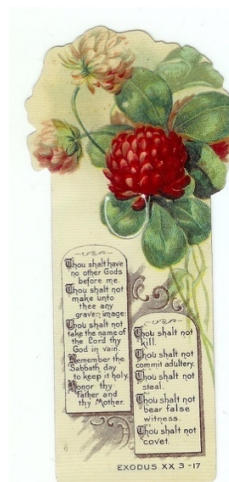 Thou shalt have
no other Gods
before me.
Thou shalt not
make unto
thee any
graven image.
Thou shalt not
take the name of
the Lord thy
God in vain.
Remember the
Sabbath day
to keep it holy.
Honor thy
Father and
thy Mother.
Thou shalt not
kill.
Thou shalt not
commit adultery.
Thou shalt not
steal.
Thou shalt not
bear false
witness.
Thou shalt not
covet.
EXODUS XX 3-17